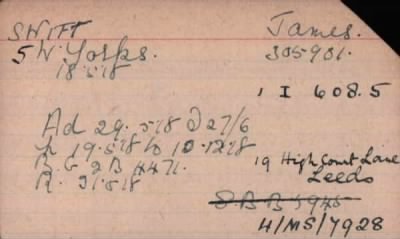 SWIFT James.
5 W. Yorks. 305901.
18.5.18
1 I 608.5
Ad 29.5.18 @ 27/6
fr 19.5.18 to 10.12.18
R.G 2B 4471.
R. 31.5.18
19 High Court Lane
Leeds
S.B.B 5945
4/MS/7928